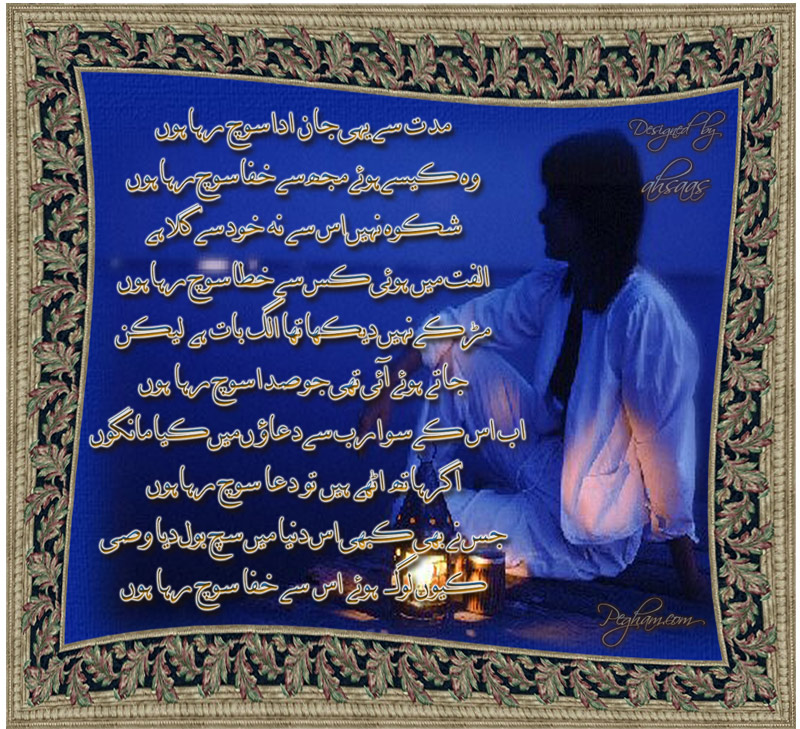 مدت سے یہی جان ادا سوچ رہا ہوں
وہ کیسے ہوئے مجھ سے خفا سوچ رہا ہوں
شکوہ نہیں اس سے نہ خود سے گلا ہے
الفت میں ہوئی کس سے خطا سوچ رہا ہوں
مڑ کے نہیں دیکھا تھا الگ بات ہے لیکن
جاتے ہوئے آئی تھی جو صدا سوچ رہا ہوں
اب اس کے سوا رب سے دعاؤں میں کیا مانگوں
اگر ہاتھ اٹھے ہیں تو دعا سوچ رہا ہوں
جس نے بھی کبھی اس دنیا میں سچ بول دیا وصی
کیوں لوگ ہوئے اس سے خفا سوچ رہا ہوں
Designed by
ahsaas
Pegham.com